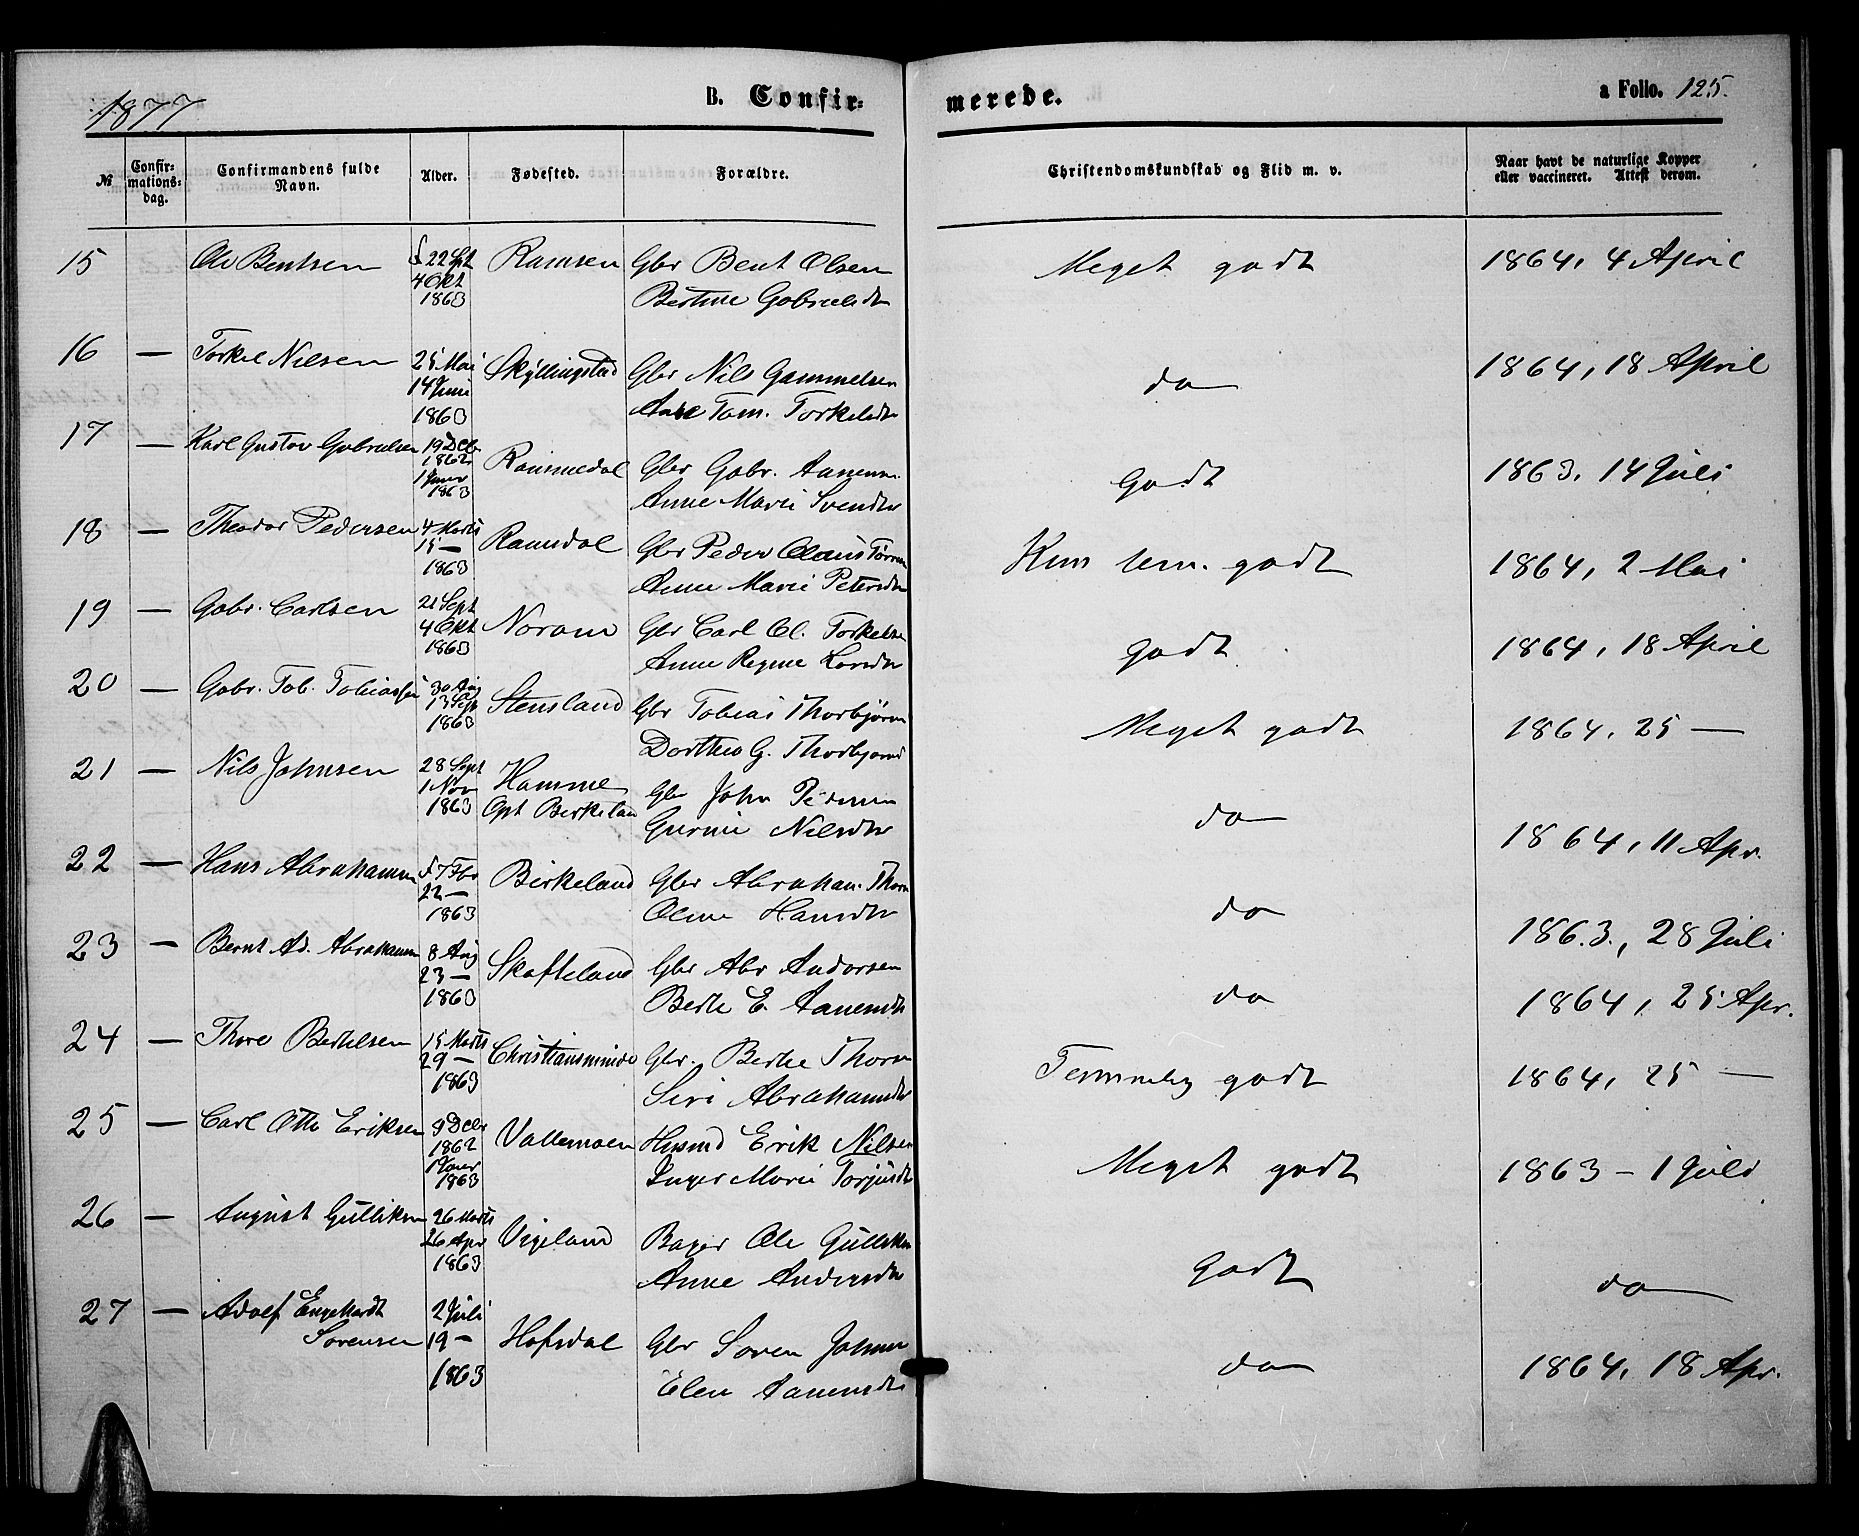 1877
B. Confir- merede.
a Folio. 125.
№ Confir-mations-dag. Confirmandens fulde Navn. Alder. Fødested. Forældre. Christendomskundskab og Flid m. v. Naar havt de naturlige Kopper eller vaccineret. Attest derom.
15 Ole Bentsen f 22 Spt 4 Okt 1863 Ramsen Gbr Bent Olsen Meget godt 1864, 4 April
Bertine Gabrielsdtr
16 — Torkel Nilsen 25 Mai 14 Juni 1863 Skyllingstad Gbr Nils Gammelsen do 1864, 18 April
Torkelsdtr
17 — Karl Gustav Gabrielsen 19 Decb 1862 1 Janr 1863 Rammedal Gbr Gabr. Aanens. Godt 1863. 14 Juli
Anne Marie Svendsdtr
18 — Theodor Pedersen 4 Marts 15 — 1863 Ramdal Gbr Peder Claus Tørres Kun tem. godt 1864, 2 Mai
Anne Marie Petersdtr
19 — Gabr. Carlsen 21 Sept 4 Okt 1863 Noram Gbr Carl Ol. Torkelsen godt 1864, 18 April
Anne Regine Larsdtr
20 — Gabr. Tob. Tobiassen 30 Aug 13 Sept 1863 Stensland Gbr Tobias Thorbjørn Meget godt 1864, 25 —
Dorthea G. Thorbjørnsd
21 — Nils Johnsen 28 Sept 1 Nov 1863 Homme Gbr John Pedersen do 1864, 11 Apr.
Opt Birkeland Gurine Nilsdtr
22 — Hans Abrahamsen f 7 Fbr 22 — 1863 Birkeland Gbr Abraham Thors do 1863, 28 Juli
Oline Hansdtr
23 — Bernt Ad. Abrahamsen 8 Aug 23 — 1863 Skofteland Gbr Abr Andersen do 1864, 25 Apr.
Berte E. Aanensdtr
24 — Thore Bertelsen 15 Marts 29 — 1863 Christiansminde Gbr. Bertel Thors Temmelig godt 1864, 25 —
Siri Abrahamsdtr
25 — Carl Otto Eriksen 9 Decbr 1862 1 Janr 1863 Vallemoen Husmd Erik Nilsen Meget godt 1863 – 1 Juli
Inger Marie Torjusdtr
26 — August Gulliksen 26 Marts 26 Apr 1863 Vigeland Bager Ole Gulliksen Godt do
Anne Andersdtr
27 — Adolf Engelhardt 2 Juli 19 – 1863 Hofsdal Gbr Søren Johnsen do 1864, 18 Apr.
Sørensen Elen Aanensdtr